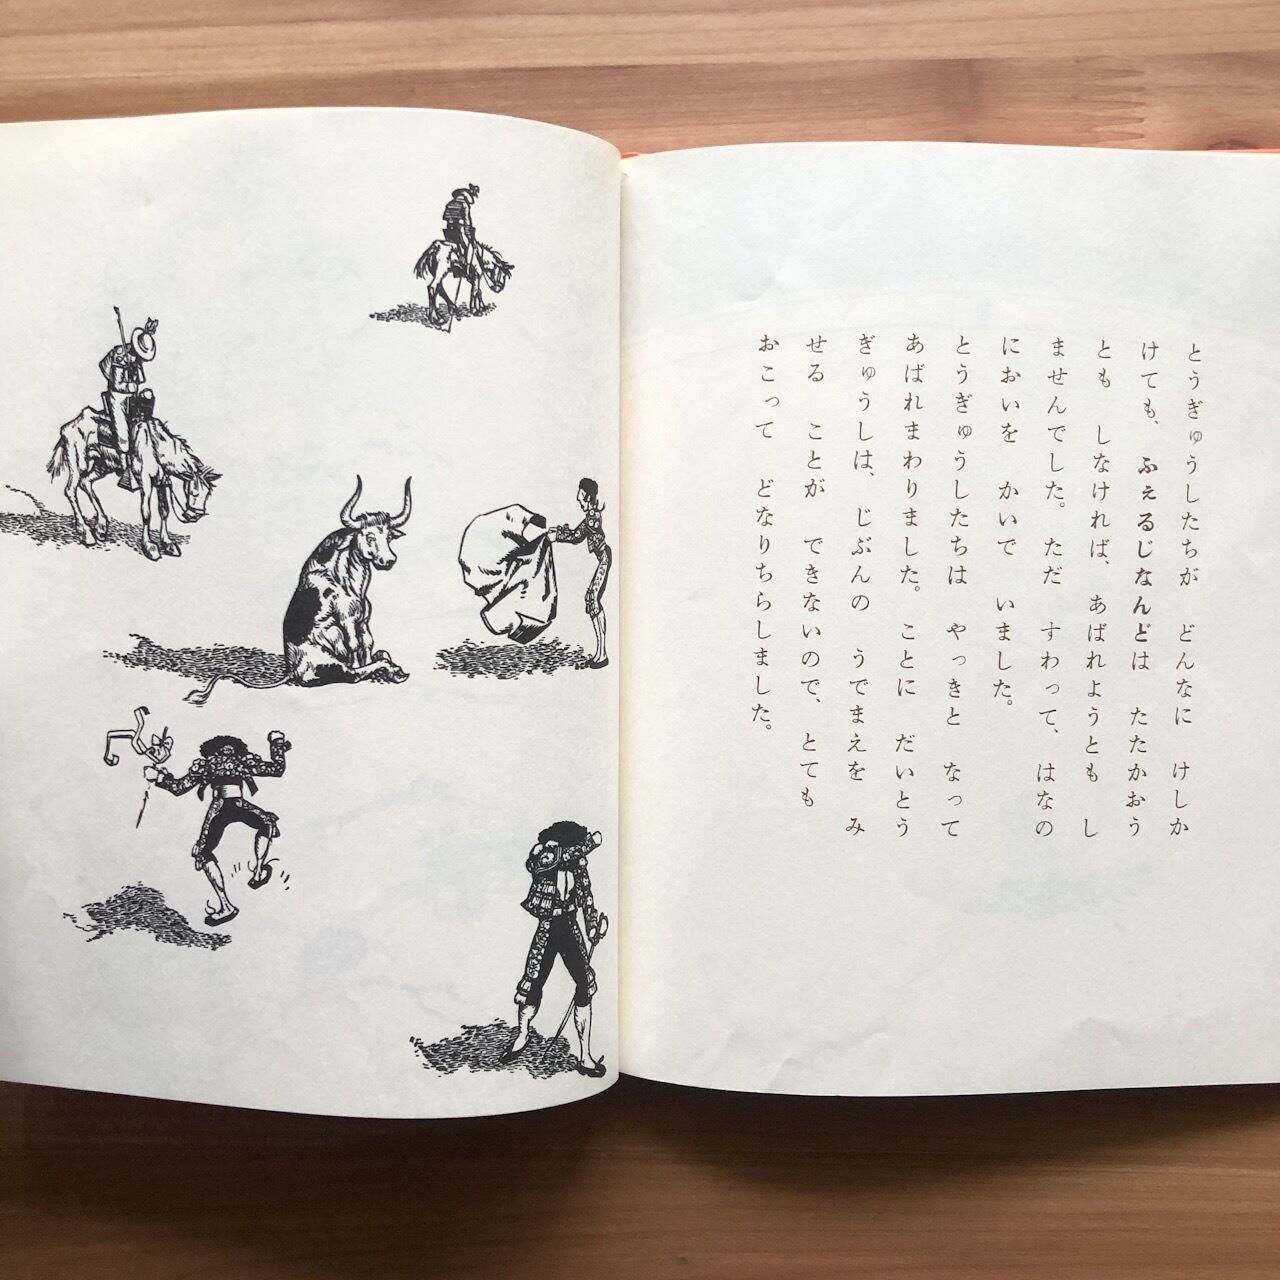 とうぎゅうしたちが　どんなに　けしか
けても、ふぇるじなんどは　たたかおう
とも　しなければ、あばれようとも　し
ませんでした。ただ　すわって、はなの
においを　かいで　いました。
とうぎゅうしたちは　やっきと　なって
あばれまわりました。ことに　だいとう
ぎゅうしは、じぶんの　うでまえを　み
せる　ことが　できないので、とても
おこって　どなりちらしました。